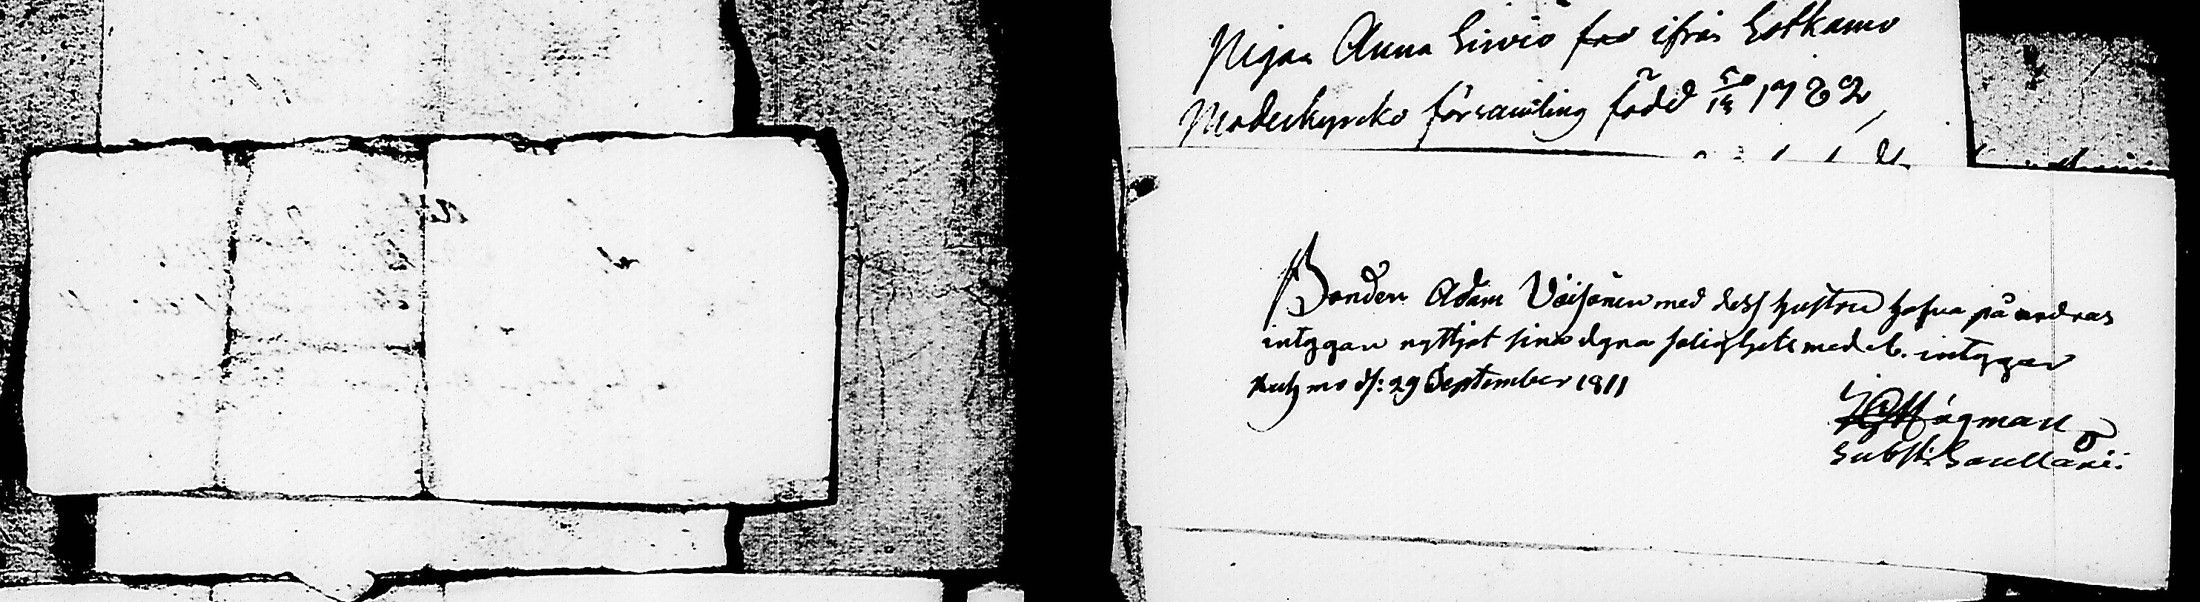 Pigan Anna Sirviö ifrån Sotkamo
Moderkyrko församling född 1782,
Bonden Adam Väisänen med dess hustru hafva på andras
intygan nyttjat sina egna salighets medel. intygar
d: 29 September 1811
Högman
Subst: Sacellani: